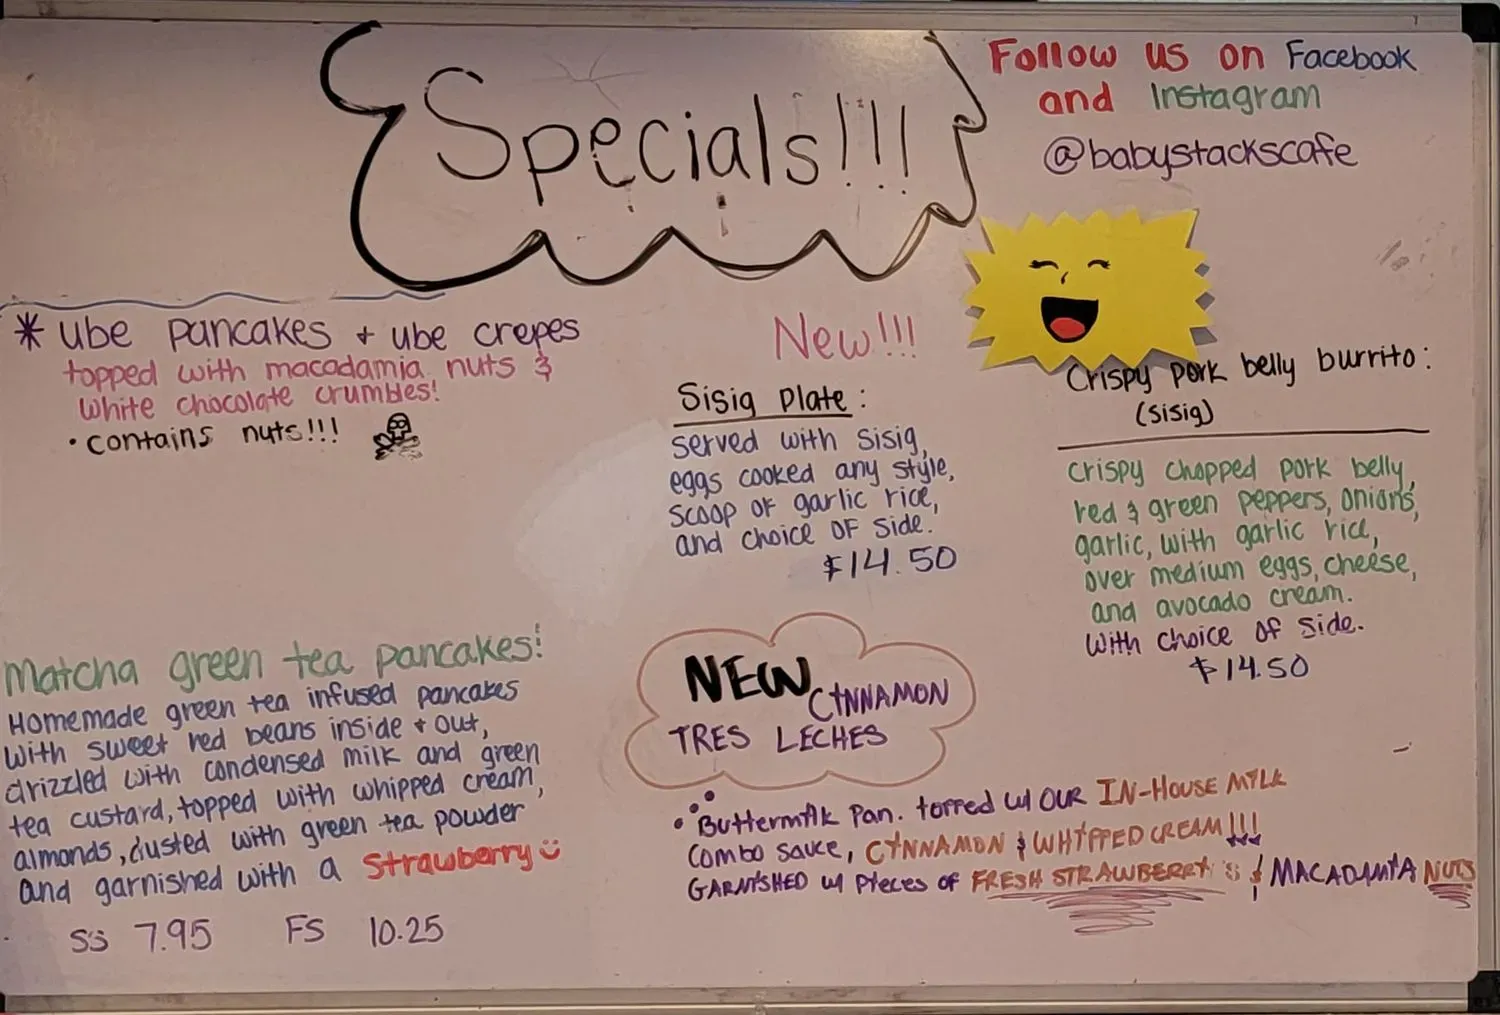 Specials!!!
Follow us on Facebook
and Instagram
@babystackscafe
* ube pancakes + ube crepes
topped with macadamia nuts &
white chocolate crumbles!
• contains nuts!!!
Matcha green tea pancakes!
Homemade green tea infused pancakes
with sweet red beans inside + out,
drizzled with condensed milk and green
tea custard, topped with whipped cream,
almonds, dusted with green tea powder
and garnished with a Strawberry
SS 7.95 FS 10.25
New!!!
Sisig Plate:
served with sisig,
eggs cooked any style,
scoop of garlic rice,
and choice of side.
$14.50
Crispy pork belly burrito:
(sisig)
crispy chopped pork belly,
red & green peppers, onions,
garlic, with garlic rice,
over medium eggs, cheese,
and avocado cream.
with choice of side.
$14.50
NEW CINNAMON
TRES LECHES
• Buttermilk Pan. topped w/ OUR IN-HOUSE MILK
Combo sauce, CINNAMON & WHIPPED CREAM!!!
GARNISHED w/ Pieces of FRESH STRAWBERRY'S & MACADAMIA NUTS